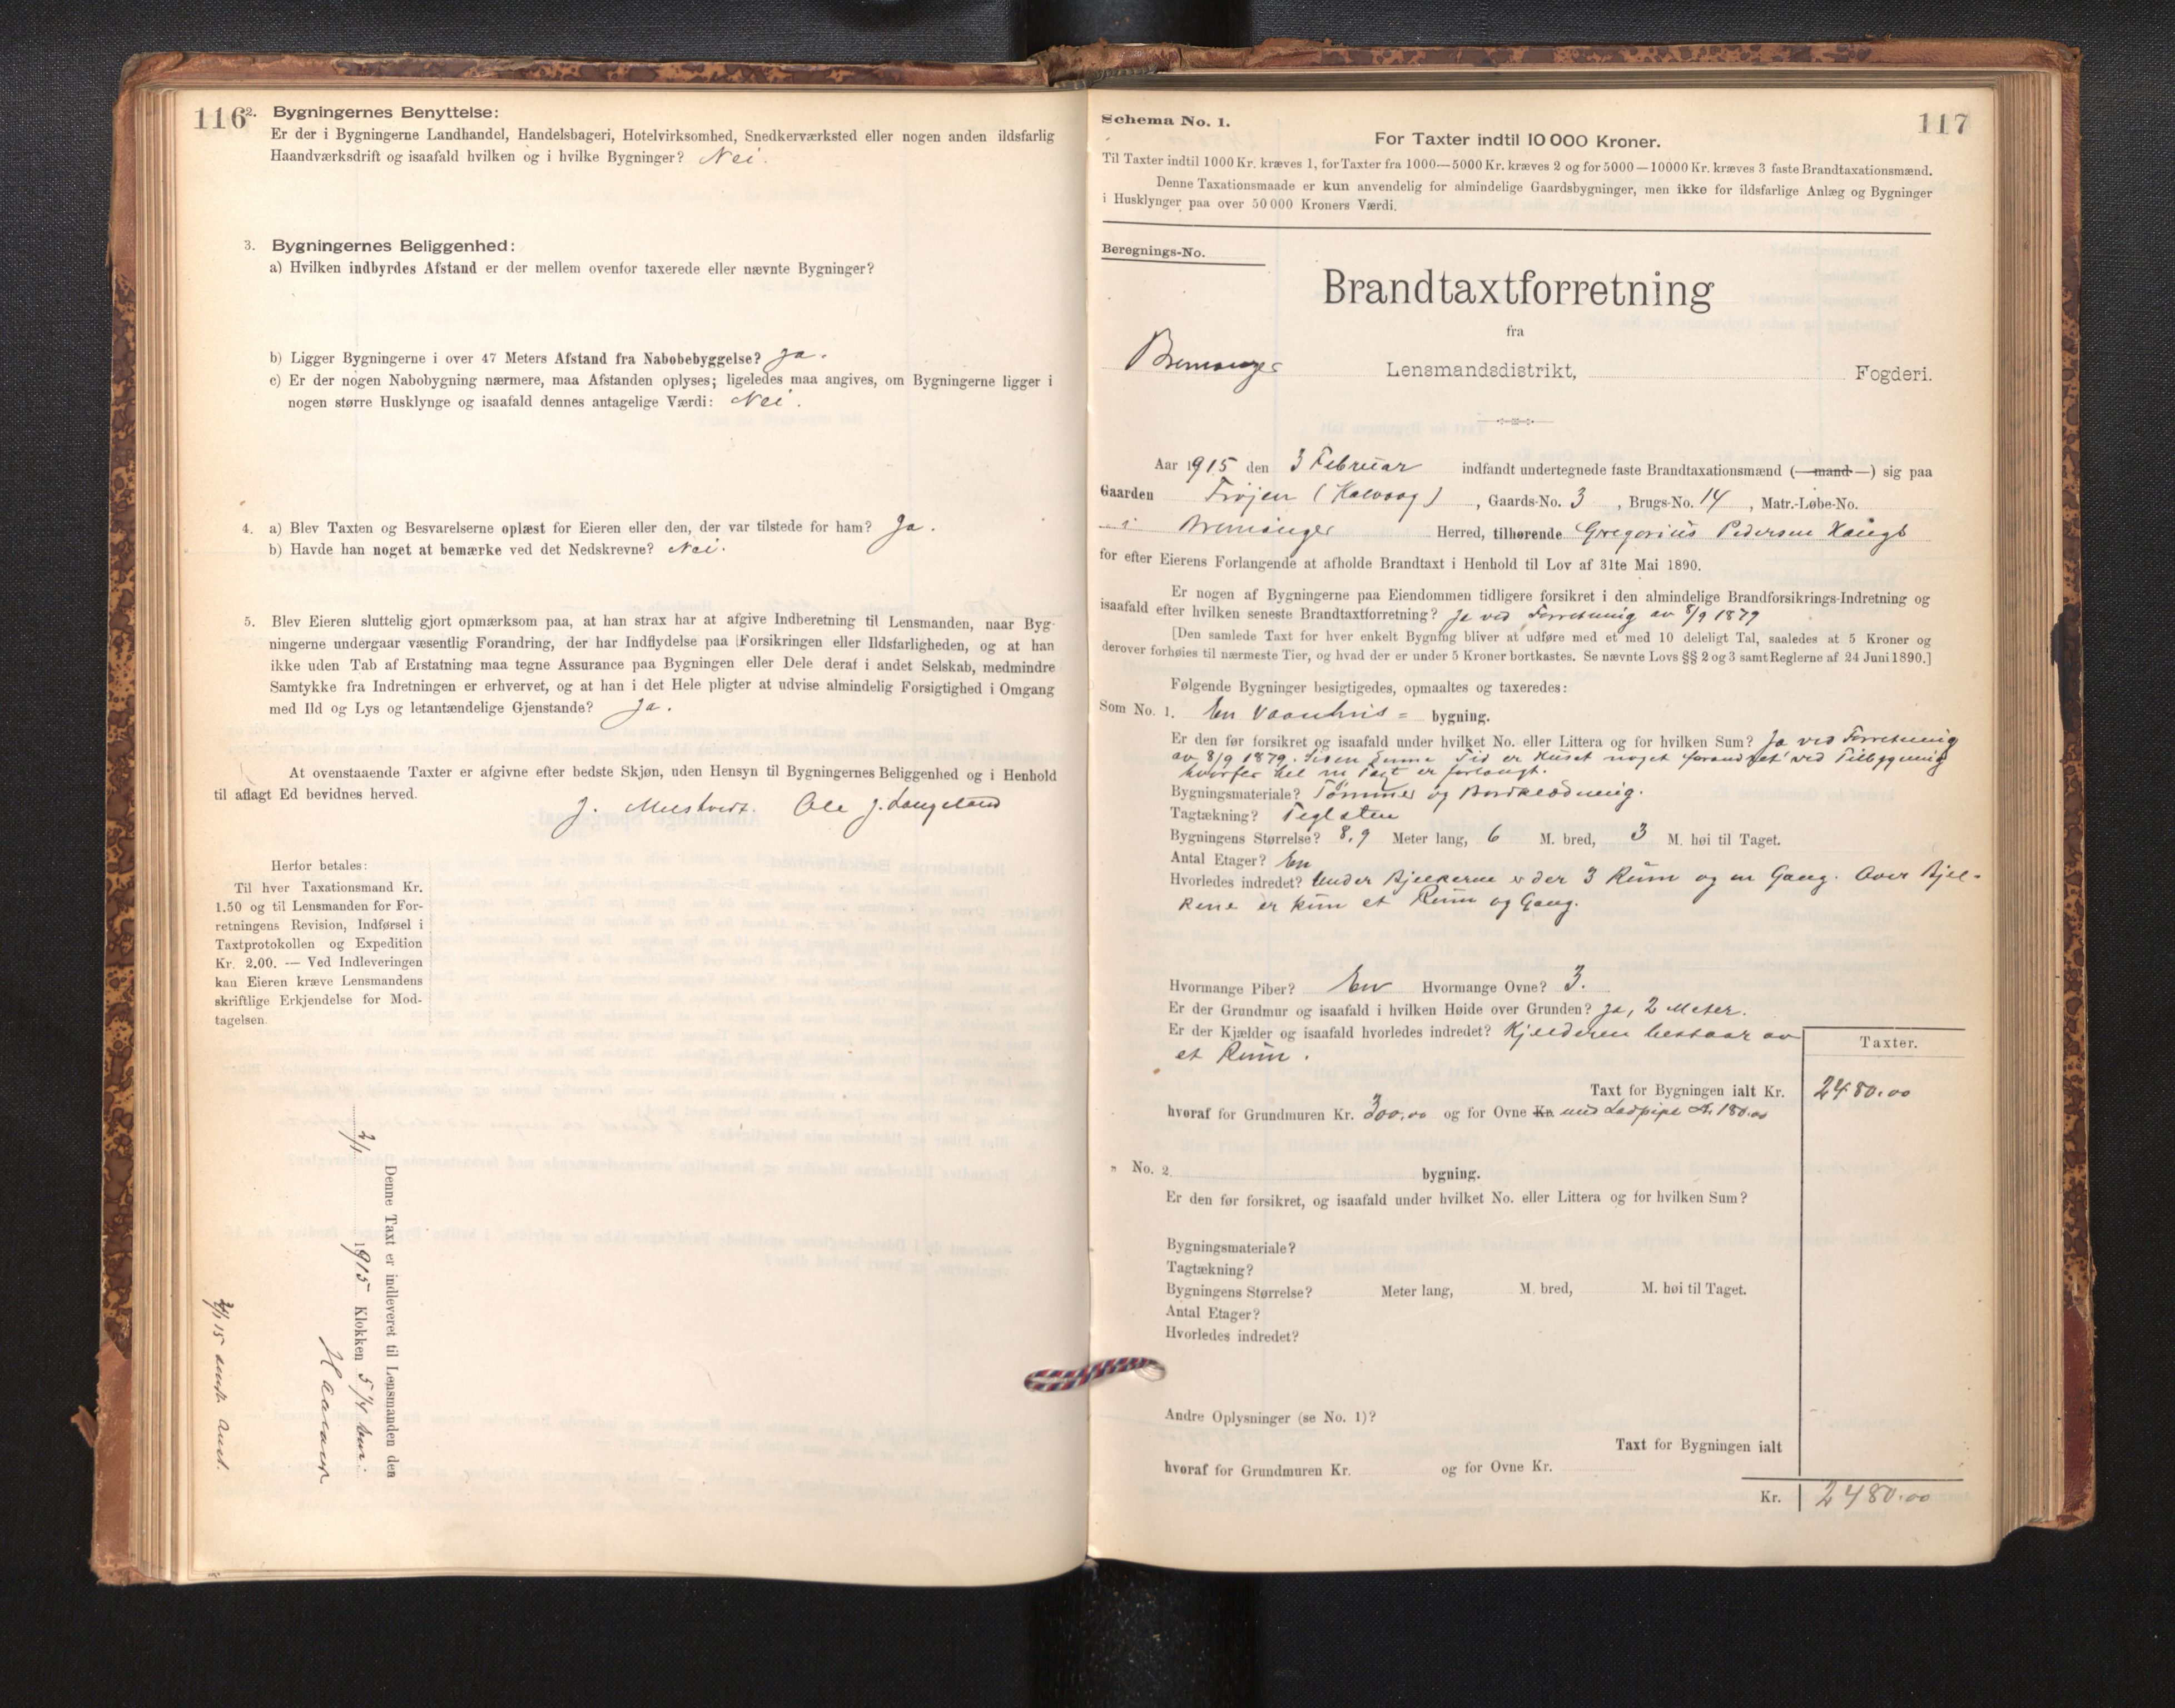 116
2. Bygningernes Benyttelse:
Er der i Bygningerne Landhandel, Handelsbageri, Hotelvirksomhed, Snedkerværksted eller nogen anden ildsfarlig
Haandværksdrift og isaafald hvilken og i hvilke Bygninger? Nei.
3. Bygningernes Beliggenhed:
a) Hvilken indbyrdes Afstand er der mellem ovenfor taxerede eller nævnte Bygninger?
b) Ligger Bygningerne i over 47 Meters Afstand fra Nabobebyggelse? Ja.
c) Er der nogen Nabobygning nærmere, maa Afstanden oplyses; ligeledes maa angives, om Bygningerne ligger i
nogen større Husklynge og isaafald dennes antagelige Værdi: Nei.
4. a) Blev Taxten og Besvarelserne oplæst for Eieren eller den, der var tilstede for ham? Ja.
b) Havde han noget at bemærke ved det Nedskrevne? Nei.
5. Blev Eieren sluttelig gjort opmærksom paa, at han strax har at afgive Indberetning til Lensmanden, naar Byg-
ningerne undergaar væsentlig Forandring, der har Indflydelse paa Forsikringen eller Ildsfarligheden, og at han
ikke uden Tab af Erstatning maa tegne Assurance paa Bygningen eller Dele deraf i andet Selskab, medmindre
Samtykke fra Indretningen er erhvervet, og at han i det Hele pligter at udvise almindelig Forsigtighed i Omgang
med Ild og Lys og letantændelige Gjenstande? Ja.
At ovenstaaende Taxter er afgivne efter bedste Skjøn, uden Hensyn til Bygningernes Beliggenhed og i Henhold
til aflagt Ed bevidnes herved.
J. Ole J. Langeland
Herfor betales:
Til hver Taxationsmand Kr.
1.50 og til Lensmanden for For-
retningens Revision, Indførsel i
Taxtprotokollen og Expedition
Kr. 2.00. — Ved Indleveringen
kan Eieren kræve Lensmandens
skriftlige Erkjendelse for Mod-
tagelsen.
Denne Taxt er indleveret til Lensmanden den
1915 Klokken 5 1/4
117
Schema No. 1.
For Taxter indtil 10 000 Kroner.
Til Taxter indtil 1000 Kr. kræves 1, for Taxter fra 1000—5000 Kr. kræves 2 og for 5000—10000 Kr. kræves 3 faste Brandtaxationsmænd.
Denne Taxationsmaade er kun anvendelig for almindelige Gaardsbygninger, men ikke for ildsfarlige Anlæg og Bygninger
i Husklynger paa over 50 000 Kroners Værdi.
Beregnings-No.
Brandtaxtforretning
fra
Bremanger Lensmandsdistrikt, Fogderi.
Aar 1915 den 3 Februar indfandt undertegnede faste Brandtaxationsmænd (—mand—) sig paa
Gaarden Frøjen (Kalvaag), Gaards-No. 3, Brugs-No. 14, Matr.-Løbe-No.
i Bremanger Herred, tilhørende Gregorius Pedersen
for efter Eierens Forlangende at afholde Brandtaxt i Henhold til Lov af 31te Mai 1890.
Er nogen af Bygningerne paa Eiendommen tidligere forsikret i den almindelige Brandforsikrings-Indretning og
isaafald efter hvilken seneste Brandtaxtforretning? Ja ved Forretning av 8/9 1879
[Den samlede Taxt for hver enkelt Bygning bliver at udføre med et med 10 deleligt Tal, saaledes at 5 Kroner og
derover forhøies til nærmeste Tier, og hvad der er under 5 Kroner bortkastes. Se nævnte Lovs §§ 2 og 3 samt Reglerne af 24 Juni 1890.]
Følgende Bygninger besigtigedes, opmaaltes og taxeredes:
Som No. 1. En Vaanhus= bygning.
Er den før forsikret og isaafald under hvilket No. eller Littera og for hvilken Sum? Ja ved Forretning
av 8/9 1879. Siden denne Tid er Huset noget forandret ved Tilbygning
hvorfor hel ny Taxt er forlangt.
Bygningsmateriale? Tømmer og Bordklædning.
Tagtækning? Teglsten
Bygningens Størrelse? 8,9 Meter lang, 6 M. bred, 3 M. høi til Taget.
Antal Etager? En
Hvorledes indredet? Under Bjelkerne er der 3 Rum og en Gang. Over Bjel-
kene er kun et Rum og Gang.
Hvormange Piber? En Hvormange Ovne? 3.
Er der Grundmur og isaafald i hvilken Høide over Grunden? Ja, 2 Meter.
Er der Kjælder og isaafald hvorledes indredet? Kjelderen bestaar av
et Rum.
Taxter.
Taxt for Bygningen ialt Kr. 2480.00
hvoraf for Grundmuren Kr. 300,00 og for Ovne Kr. med Ladpipe Kr. 180.00
„ No. 2 bygning.
Er den før forsikret, og isaafald under hvilket No. eller Littera og for hvilken Sum?
Bygningsmateriale?
Tagtækning?
Bygningens Størrelse? Meter lang, M. bred, M. høi til Taget.
Antal Etager?
Hvorledes indredet?
Andre Oplysninger (se No. 1)?
Taxt for Bygningen ialt
hvoraf for Grundmuren Kr. og for Ovne Kr.
Kr. 2480.00